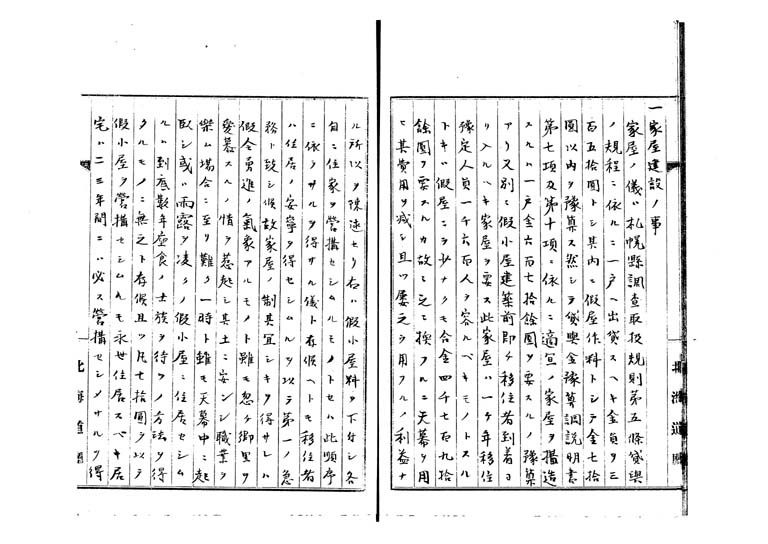 一家屋建設ノ事
家屋ノ儀ハ札幌縣調査取扱規則第五條貸與
ノ規程ニ依ルニ一戸ヘ出貸スヘキ金員ヲ三
百五拾圓トシ其内ニ假屋作料トシテ金七拾
圓以内ヲ豫算ス然シテ貸與金豫算調説明書
第七項及第十項ニ依ルニ適宜ノ家屋ヲ搆造
スルハ一戸金六百七拾餘圓ヲ要スルノ豫算
アリ又別ニ假小屋建築前即チ移住者到着日
リ入ルヘキ家屋ヲ要ス此家屋ハ一ケ年移住
豫定人員一千六百人ヲ容ルベキモノトスル
トキハ假屋ニヲ少ナクモ合金四千七百九拾
餘圓ヲ要スルカ故ニ之ニ換フルニ天幕ヲ用
ヒ其費用ヲ减シ且ツ屡之ヲ用フルノ利益ナ
ル所以ヲ陳述セリ右ハ假小屋料ヲ下付シ各
自ニ住家ヲ營搆セシムルモノトセハ此順序
ニ依ラサルヲ得サル儀ト存候ヘトモ移住者
ハ住居ノ安寧ヲ得セシムルヲ以テ第一ノ急
務ト致シ候故家屋ノ制其宜シキヲ得サレハ
假令勇進ノ氣象アルモノト雖モ忽チ郷里ヲ
愛慕スルノ情ヲ惹起シ其土ニ安ンシ職業ヲ
樂ム場合ニ至リ難ク一時ト雖モ天幕中ニ起
臥シ或ハ雨露ヲ凌クノ假小屋ニ住居セシム
ルハ到底數年座食ノ士族ヲ待ツノ方法ヲ得
タルモノニ無之ト存候且ツ凡七拾圓ヲ以テ
假小屋ヲ營搆セシムルモ永世住居スベキ居
宅ハ二三年間ニハ必ス營搆セシメサルヲ得
北海道廳